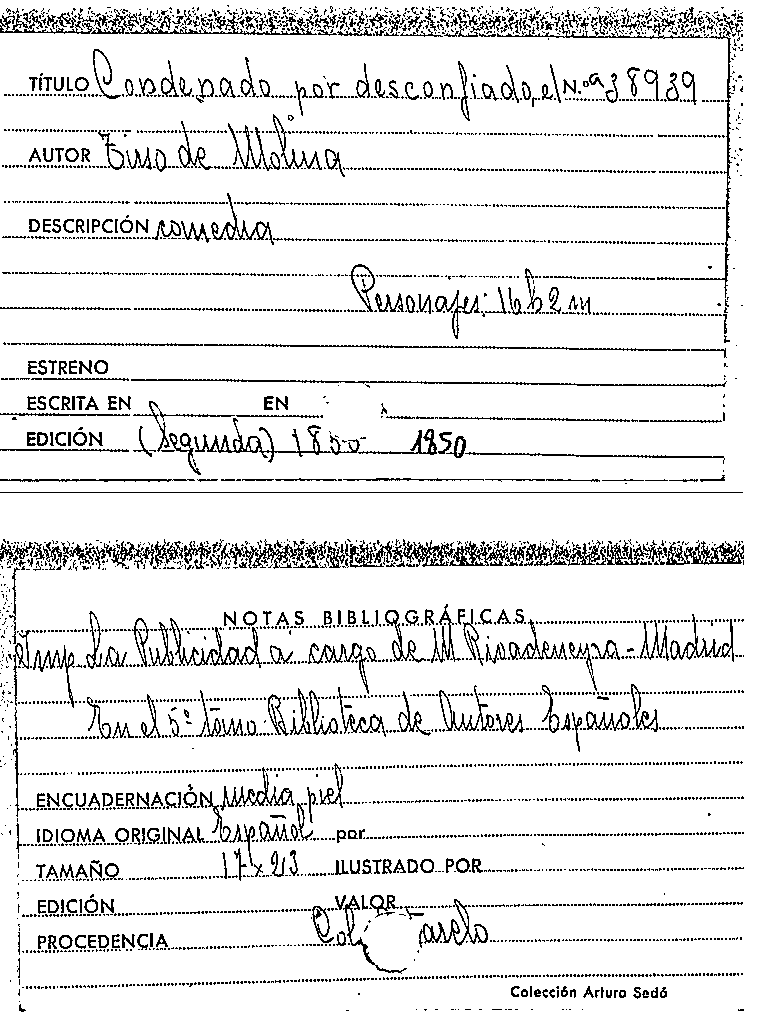 TÍTULO Condenado por desconfiado, el N.º 938939
AUTOR Tirso de Molina
DESCRIPCIÓN comedia
Personajes: 16 h 2 m
ESTRENO
ESCRITA EN EN
EDICIÓN (Segunda) 1850 1850
NOTAS BIBLIOGRÁFICAS
Imp La Publicidad a cargo de M Rivadeneyra - Madrid
En el 5º tomo Biblioteca de Autores Españoles
ENCUADERNACIÓN media piel
IDIOMA ORIGINAL Español por
TAMAÑO 17 x 23 ILUSTRADO POR
EDICIÓN VALOR
PROCEDENCIA Col
Colección Arturo Sedó